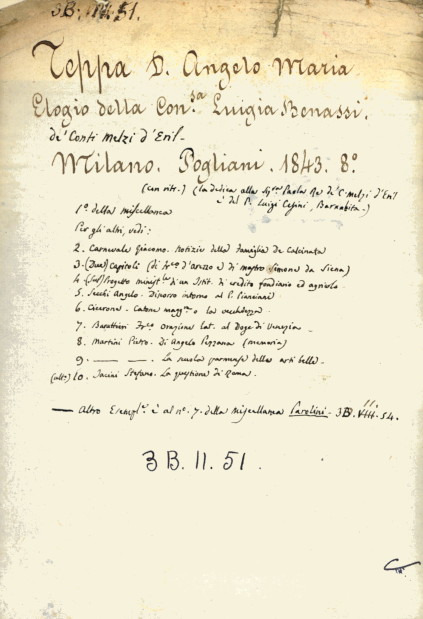 3B. II. 51.
Teppa D. Angelo Maria
Elogio della Con.sa Luigia Benassi.
de' Conti Melzi d'Eril-
Milano. Pogliani. 1843. 8.°
(con ritr.) (la dedica alla Paola Re de' C. Melzi d'Eril
è del P. Luigi Cesini, Barnabita.)
1.° della miscellanea
Per gli altri, vedi:
2. Carnevale Giacomo. Notizie della Famiglia de Calcinata
3. (Due) Capitoli (di d'Arezzo e di mastro Simone da Siena)
4. Progetto di un Istit. di credito fondiario ed agricolo.
5. Secchi Angelo. Discorso intorno al P. Pianciani
6. Cicerone. Catone magg.re o la vecchiezza.
7. Barattieri Fr.co Orazione lat. al Doge di Venezia.
8. Martini Pietro. Di Angelo Pezzana (memoria)
9. —— ——. La scuola parmense delle arti belle.
10. Jacini Stefano. La questione di Roma.
— Altro Esempl.e è al n.° 7. della miscellanea 3B. VIII. 54.
II.
3 B. II. 51.